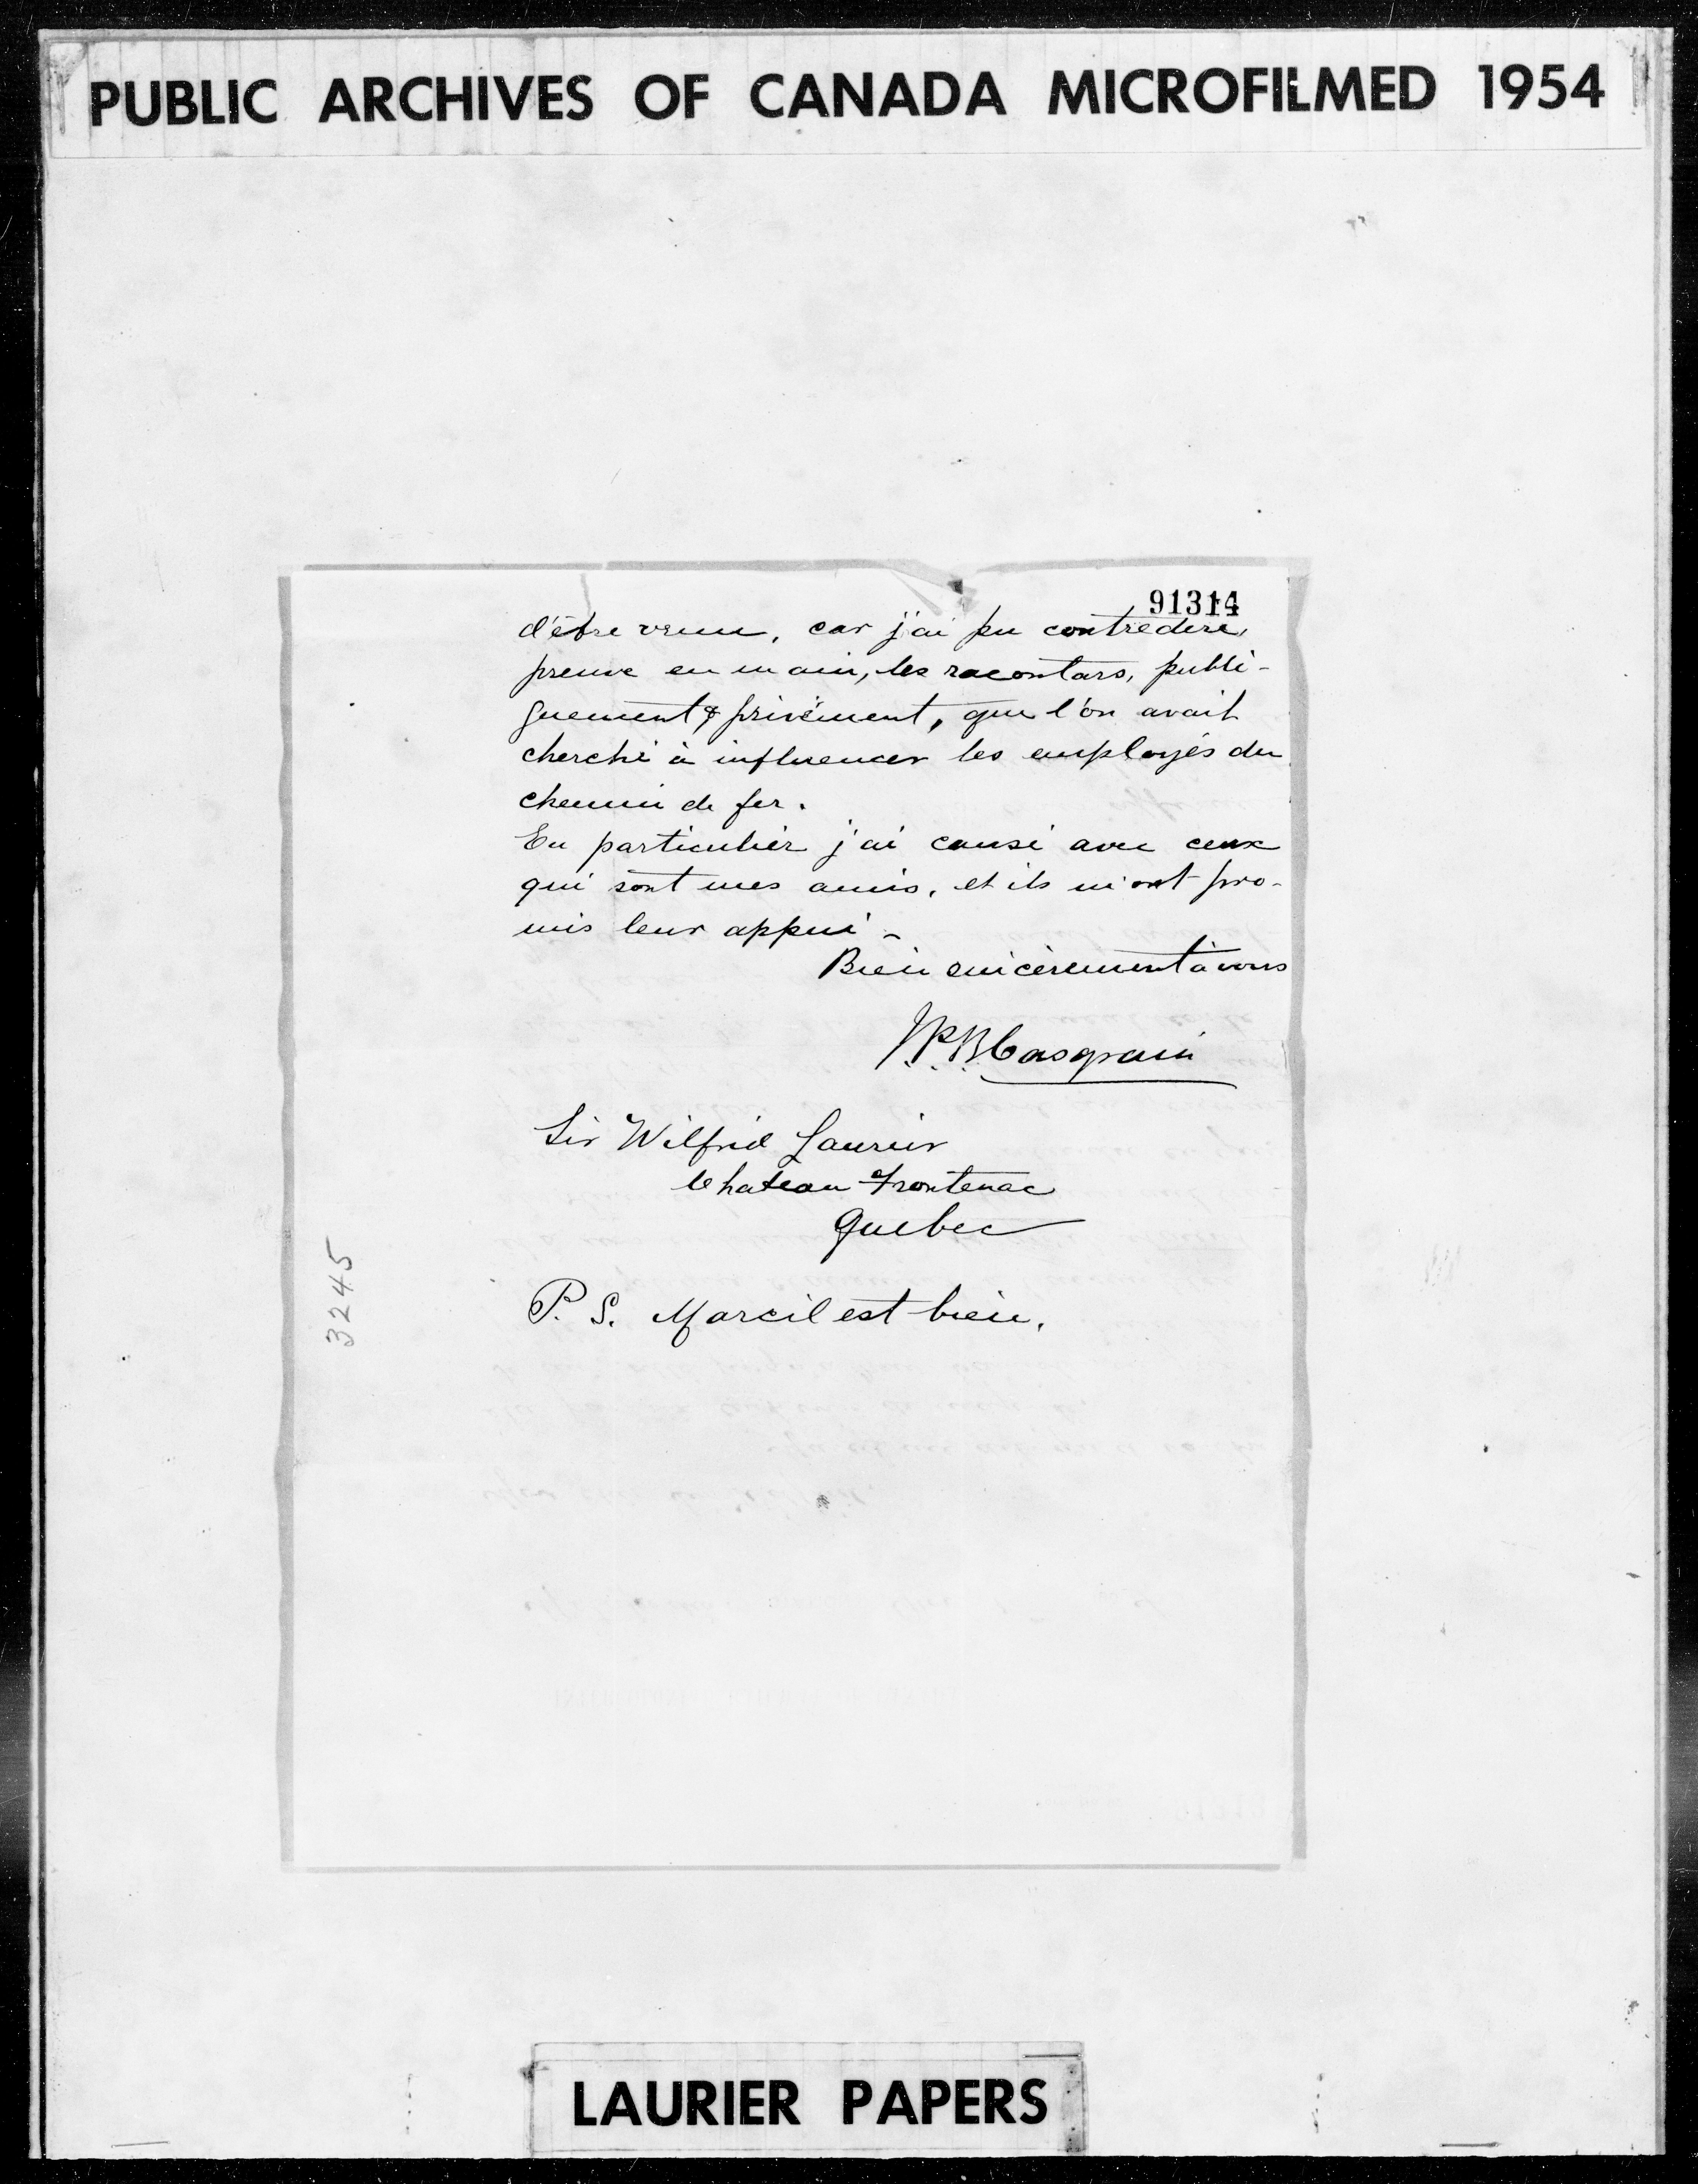 PUBLIC ARCHIVES OF CANADA MICROFILMED 1954
91314
d'être venu, car j'ai pu contredire,
preuve en main, les racontars, publi-
quement & privément, que l'on avait
cherché à influencer les employés du
chemin de fer.
En particulier j'ai causé avec ceux
qui sont mes amis, et ils m'ont pro-
mis leur appui -
Bien sincèrement à vous
J.P.B. Casgrain
Sir Wilfrid Laurier
Chateau Frontenac
Quebec
P.S. Marcil est bien.
3245
LAURIER PAPERS